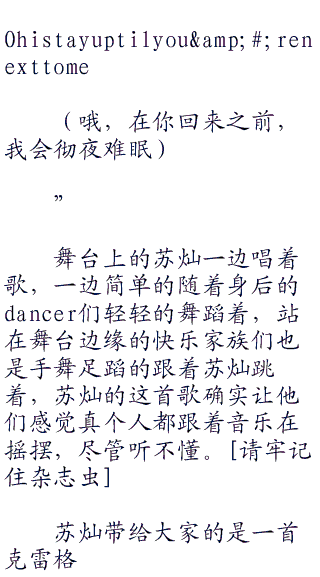 Ohistayuptilyou&amp;#;ren
exttome
（哦，在你回来之前，
我会彻夜难眠）
”
舞台上的苏灿一边唱着
歌，一边简单的随着身后的
dancer们轻轻的舞蹈着，站
在舞台边缘的快乐家族们也
是手舞足蹈的跟着苏灿跳
着，苏灿的这首歌确实让他
们感觉真个人都跟着音乐在
摇摆，尽管听不懂。[请牢记
住杂志虫]
苏灿带给大家的是一首
克雷格